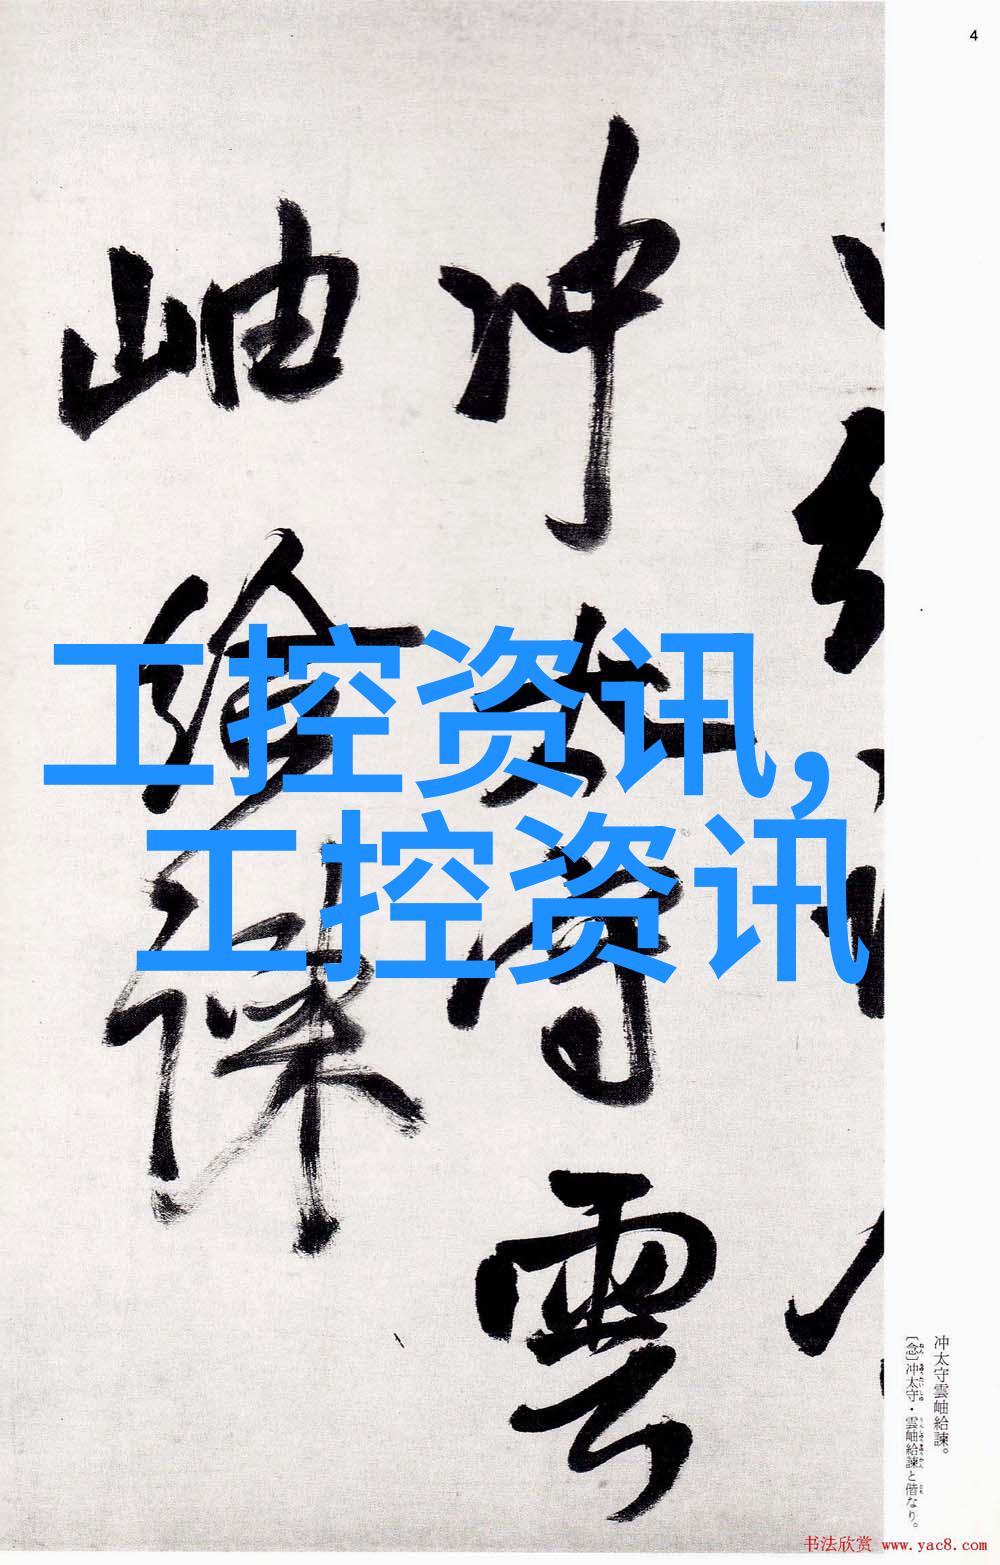 4
冲太守雲
岫給諫
工控资讯,
工控资讯
冲太守雲岫給諫。
〔念〕冲太守・雲岫給諫と偕なり。
书法欣赏 www.yac8.com